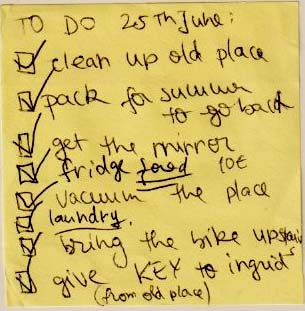 TO DO 25Th June:
clean up old place
pack for summer
to go back
get the mirror
fridge food 10€
vacuum the place
laundry.
bring the bike upstairs
give KEY to ingrid
(from old place)